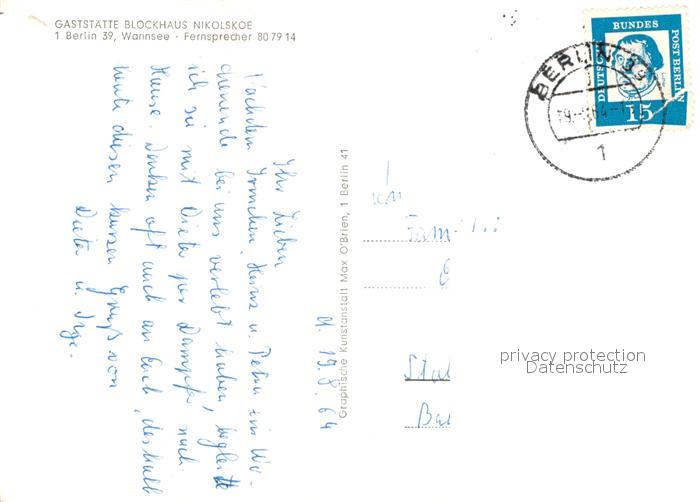 GASTSTÄTTE BLOCKHAUS NIKOLSKOE
1 Berlin 39, Wannsee · Fernsprecher 80 79 14
Ihr Lieben
Nachdem Irmchen, Heinz u. Petra ein Wo-
chenende bei uns verlebt haben, begleitte
ich sie mit Dieter per Dampfer nach
Hause. Denken oft auch an Euch, deshalb
heute diesen kurzen Gruß von
Dieter u. Inge.
d. 19.8.64
Graphische Kunstanstalt Max O'Brien, 1 Berlin 41
Fam
privacy protection
Datenschutz
BUNDES
DEUTSCHE
POST BERLIN
15
BERLIN 39
1